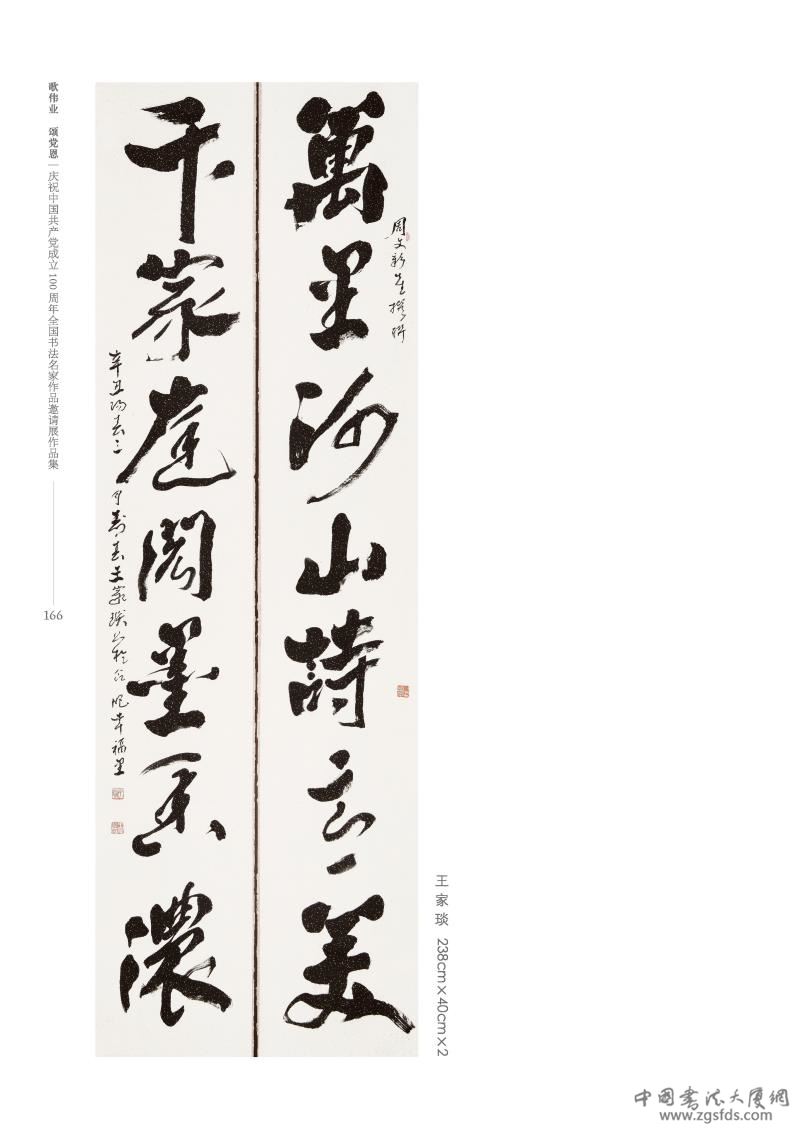 歌伟业 颂党恩 | 庆祝中国共产党成立100周年全国书法名家作品邀请展作品集
166
萬里河山詩意美
周文 撰聯
千家庭閣墨香濃
辛丑陽春三月壽春王家琰書於合肥幸福里
王家琰 238cm×40cm×2
中國書法大廈網
www.zgsfds.com